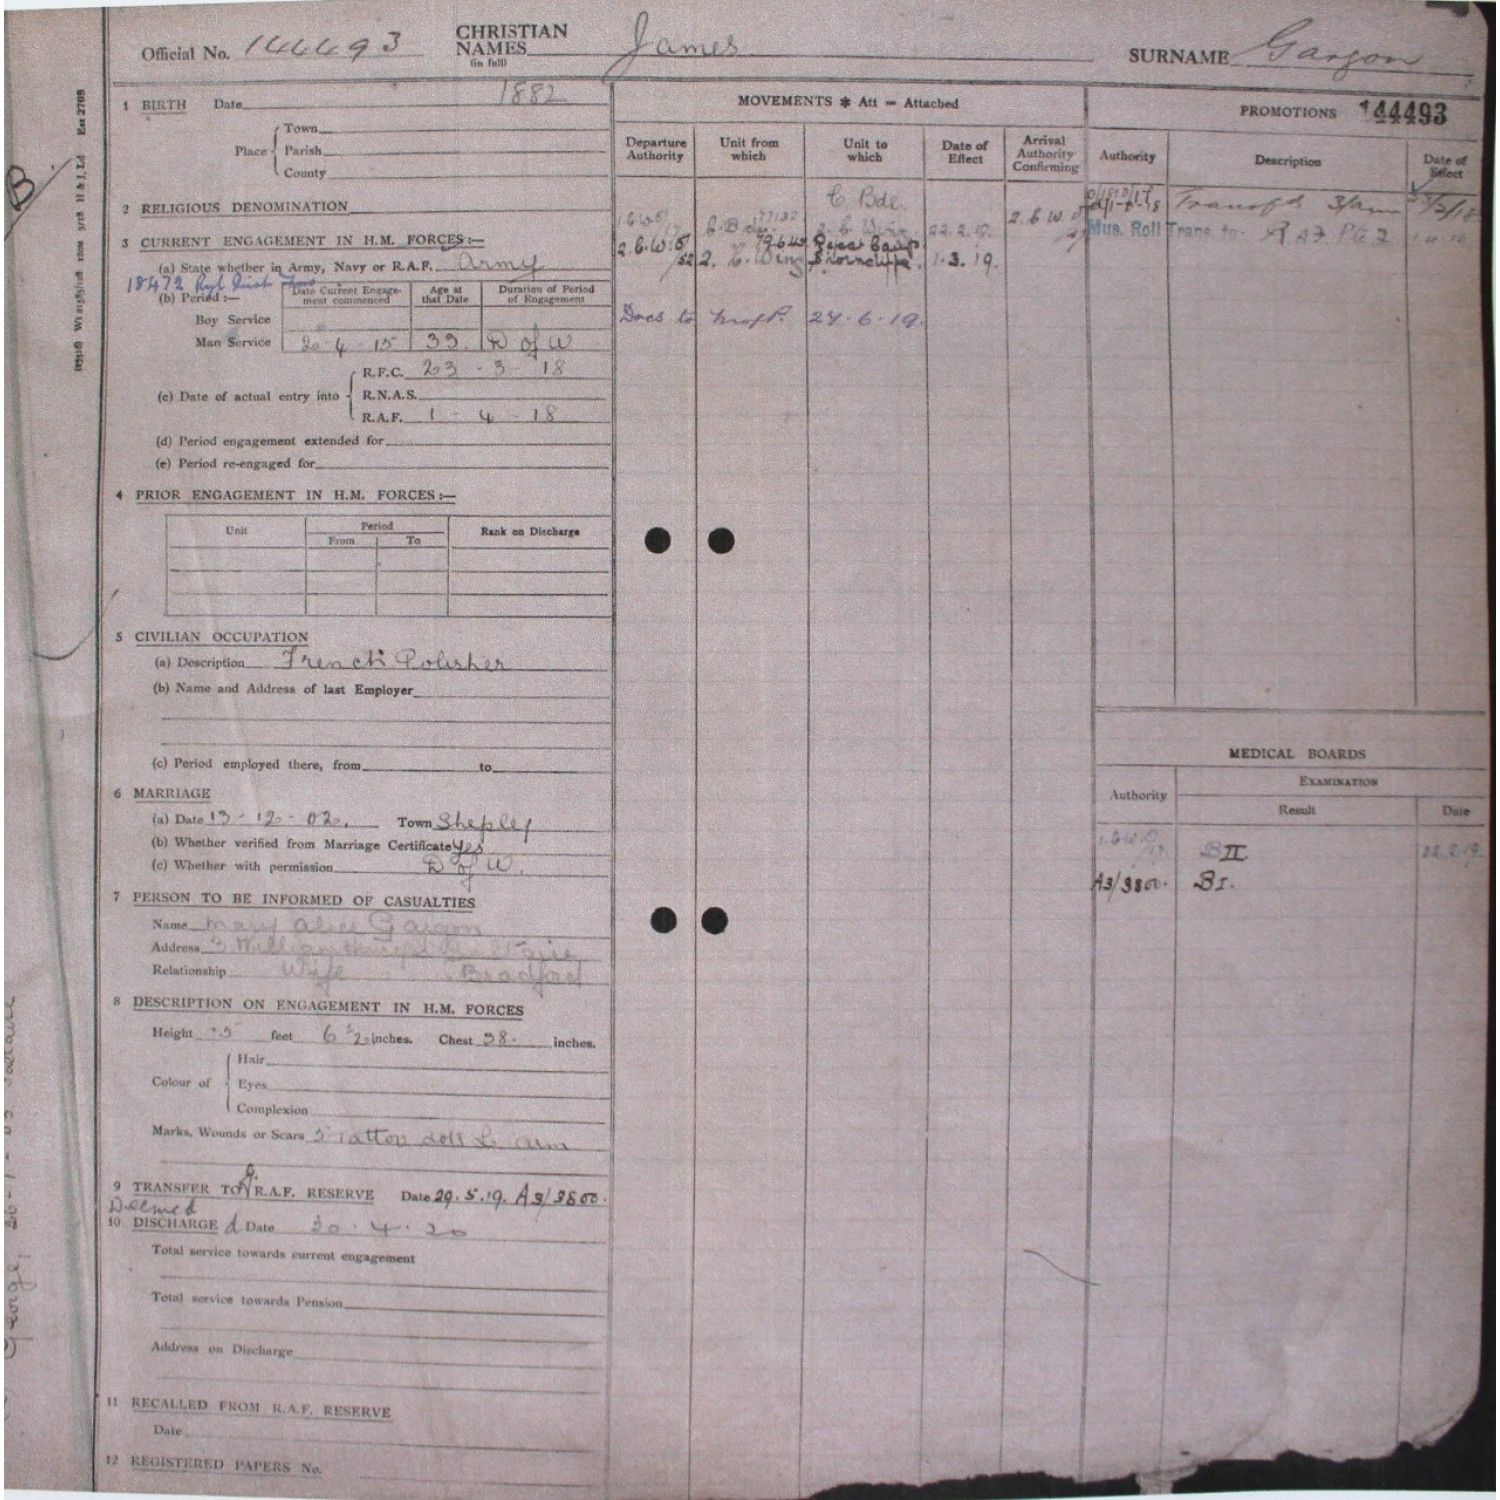 Official No. 144493 CHRISTIAN NAMES (in full) James SURNAME Gargon
1 BIRTH Date 1882
Place Town
Parish
County
2 RELIGIOUS DENOMINATION
3 CURRENT ENGAGEMENT IN H.M. FORCES:—
(a) State whether in Army, Navy or R.A.F. Army
18472
(b) Period :— Date Current Engagement commenced Age at that Date Duration of Period of Engagement
Boy Service
Man Service 20-4-15 33 D of W
(c) Date of actual entry into R.F.C. 23-3-18
R.N.A.S.
R.A.F. 1-4-18
(d) Period engagement extended for
(e) Period re-engaged for
4 PRIOR ENGAGEMENT IN H.M. FORCES:—
Unit Period Rank on Discharge
From To
5 CIVILIAN OCCUPATION
(a) Description French Polisher
(b) Name and Address of last Employer
(c) Period employed there, from to
6 MARRIAGE
(a) Date 13-12-02. Town Shepley
(b) Whether verified from Marriage Certificate Yes
(c) Whether with permission D of W.
7 PERSON TO BE INFORMED OF CASUALTIES
Name Mary Alice Gargon
Address 3
Relationship Wife Bradford
8 DESCRIPTION ON ENGAGEMENT IN H.M. FORCES
Height 5 feet 6½ inches. Chest 38. inches.
Colour of Hair
Eyes
Complexion
Marks, Wounds or Scars L. arm
9 TRANSFER TO G. R.A.F. RESERVE Date 29.5.19. A3/3800.
Deemed
10 DISCHARGE d Date 30.4.20
Total service towards current engagement
Total service towards Pension
Address on Discharge
11 RECALLED FROM R.A.F. RESERVE
Date
12 REGISTERED PAPERS No.
MOVEMENTS * Att = Attached
Departure Authority Unit from which Unit to which Date of Effect Arrival Authority Confirming
C Bde
22.2.19.
2. C. Wing Repat Camp Shorncliffe. 1.3.19.
Docs to 24.6.19.
PROMOTIONS 144493
Authority Description Date of Effect
Transfd 3/am
Mus. Roll Trans. to R.A.F. Pte 2
MEDICAL BOARDS
Authority EXAMINATION
Result Date
B II 22.2.19.
A3/3800. B I.
B
George,